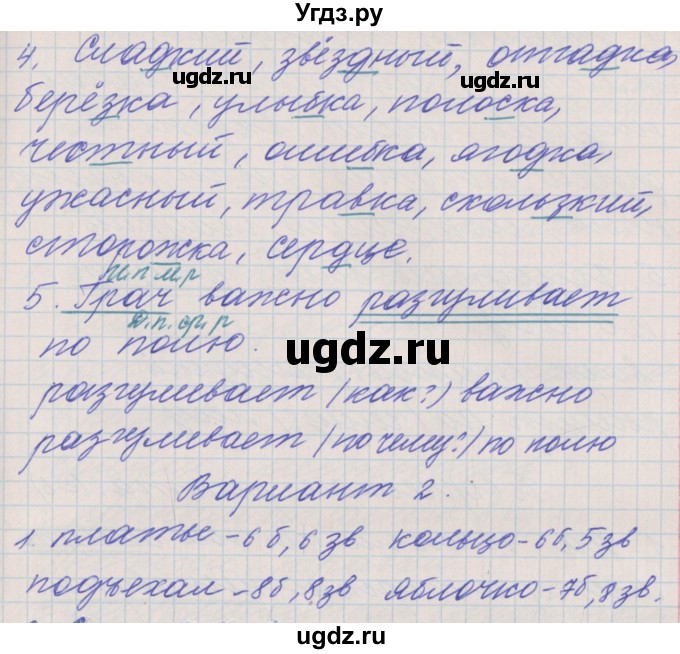 Угдз.ру
4. Сладкий, звёздный, отгадка,
ugdz.ru ugdz.ru
берёзка, улыбка, полоска,
честный, ошибка, ягодка,
ужасный, травка, скользкий,
сторожка, сердце.
И.п м.р
5. Грач важно разгуливает
Д.п. ср.р
по полю.
ugdz.ru
разгуливает (как?) важно
разгуливает (почему?) по полю
Вариант 2.
1. платье - 6 б, 6 зв кольцо - 6б, 5 зв
ugdz.ru ugdz.ru
подъехал - 8б, 8 зв яблочко - 7б, 8 зв.
ugdz.ru